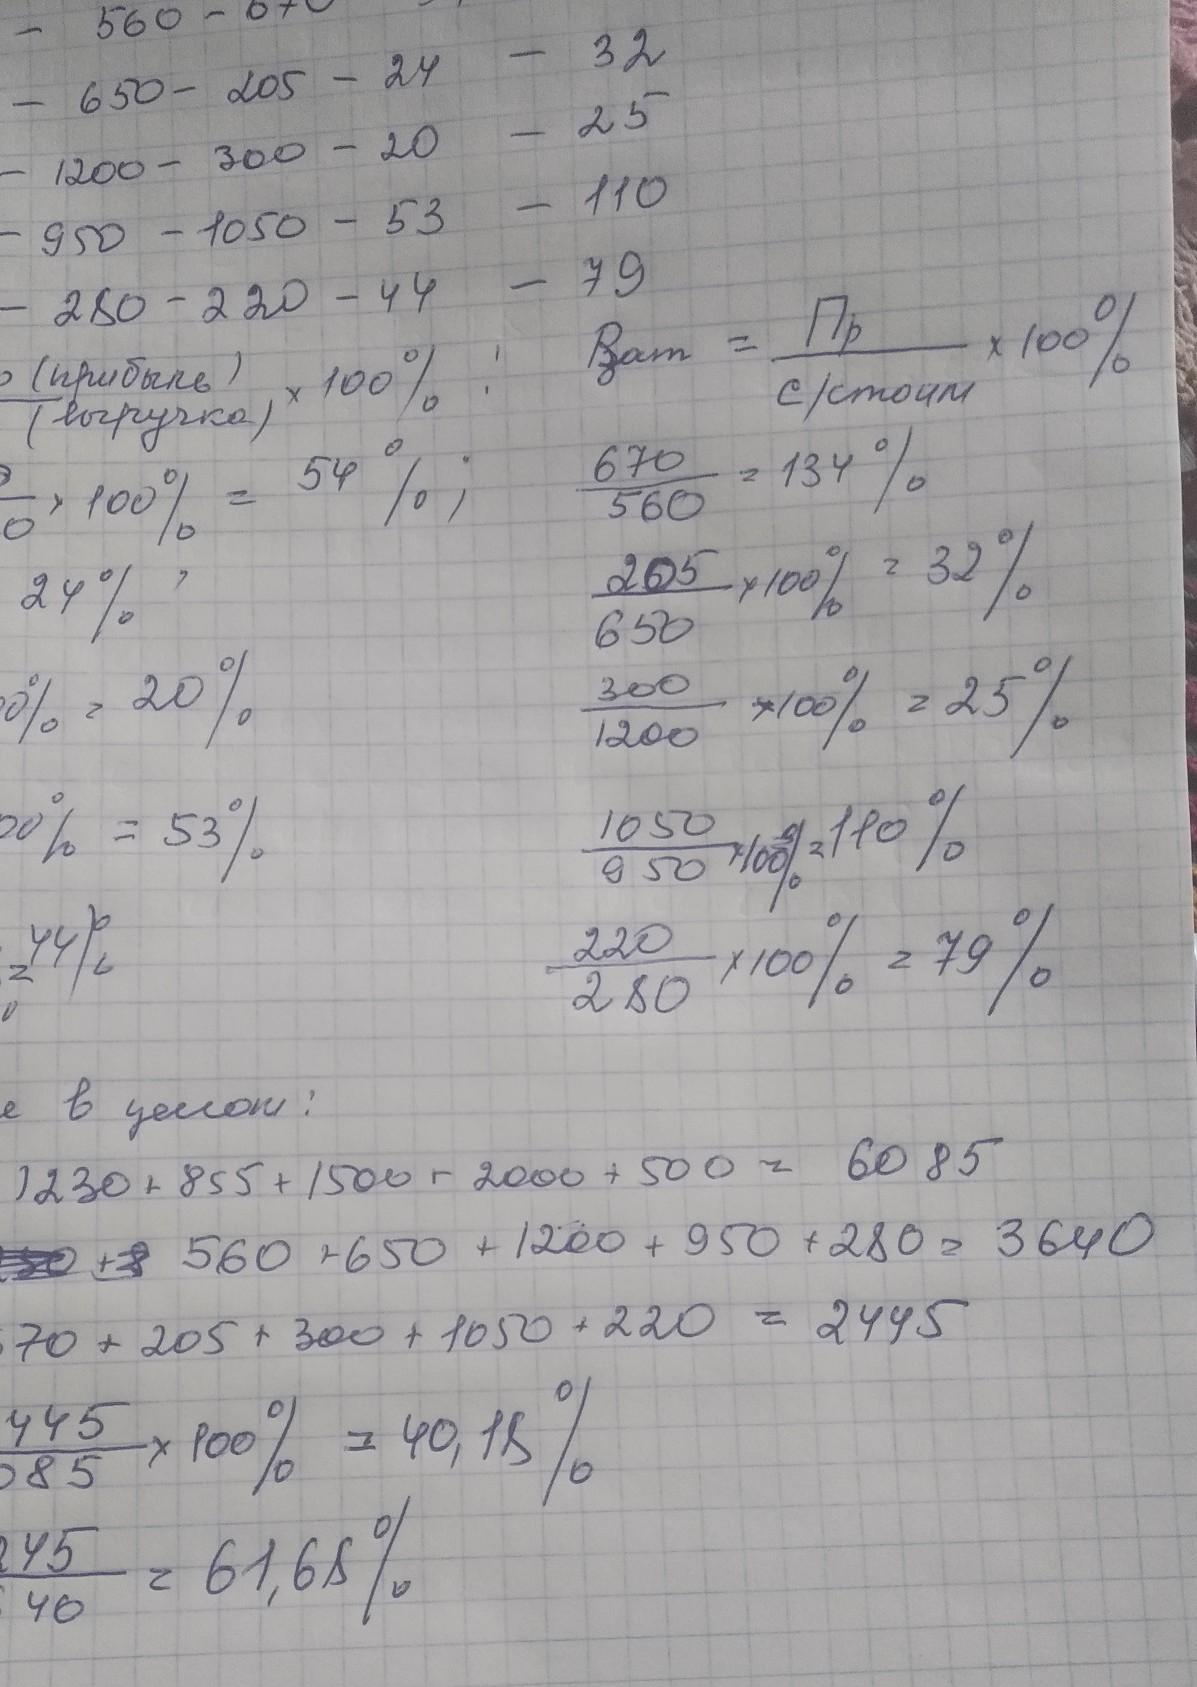 - 560 - 670
- 650 - 205 - 24 - 32
- 1200 - 300 - 20 - 25
- 950 - 1050 - 53 - 110
- 280 - 220 - 44 - 79
(прибыль) / (выручка) × 100% ; Rзат = Пр / с/стоим × 100%
0 × 100% = 54%; 670 / 560 = 134%
24%, 205 / 650 × 100% = 32%
00% = 20% 300 / 1200 × 100% = 25%
00% = 53% 1050 / 950 × 100% = 110%
= 44% 220 / 280 × 100% = 79%
е в целом:
1230 + 855 + 1500 + 2000 + 500 = 6085
560 + 650 + 1200 + 950 + 280 = 3640
670 + 205 + 300 + 1050 + 220 = 2445
445 / 085 × 100% = 40,18%
245 / 40 = 61,68%